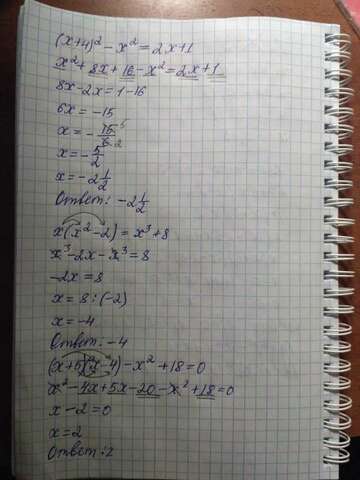 (x+4)² - x² = 2x+1
x² + 8x + 16 - x² = 2x + 1
8x - 2x = 1 - 16
6x = -15
x = - 15/6 5 2
x = - 5/2
x = -2 1/2
Ответ: -2 1/2
x(x² - 2) = x³ + 8
x³ - 2x - x³ = 8
-2x = 8
x = 8 : (-2)
x = -4
Ответ: -4
(x+5)(x-4) - x² + 18 = 0
x² - 4x + 5x - 20 - x² + 18 = 0
x - 2 = 0
x = 2
Ответ: 2